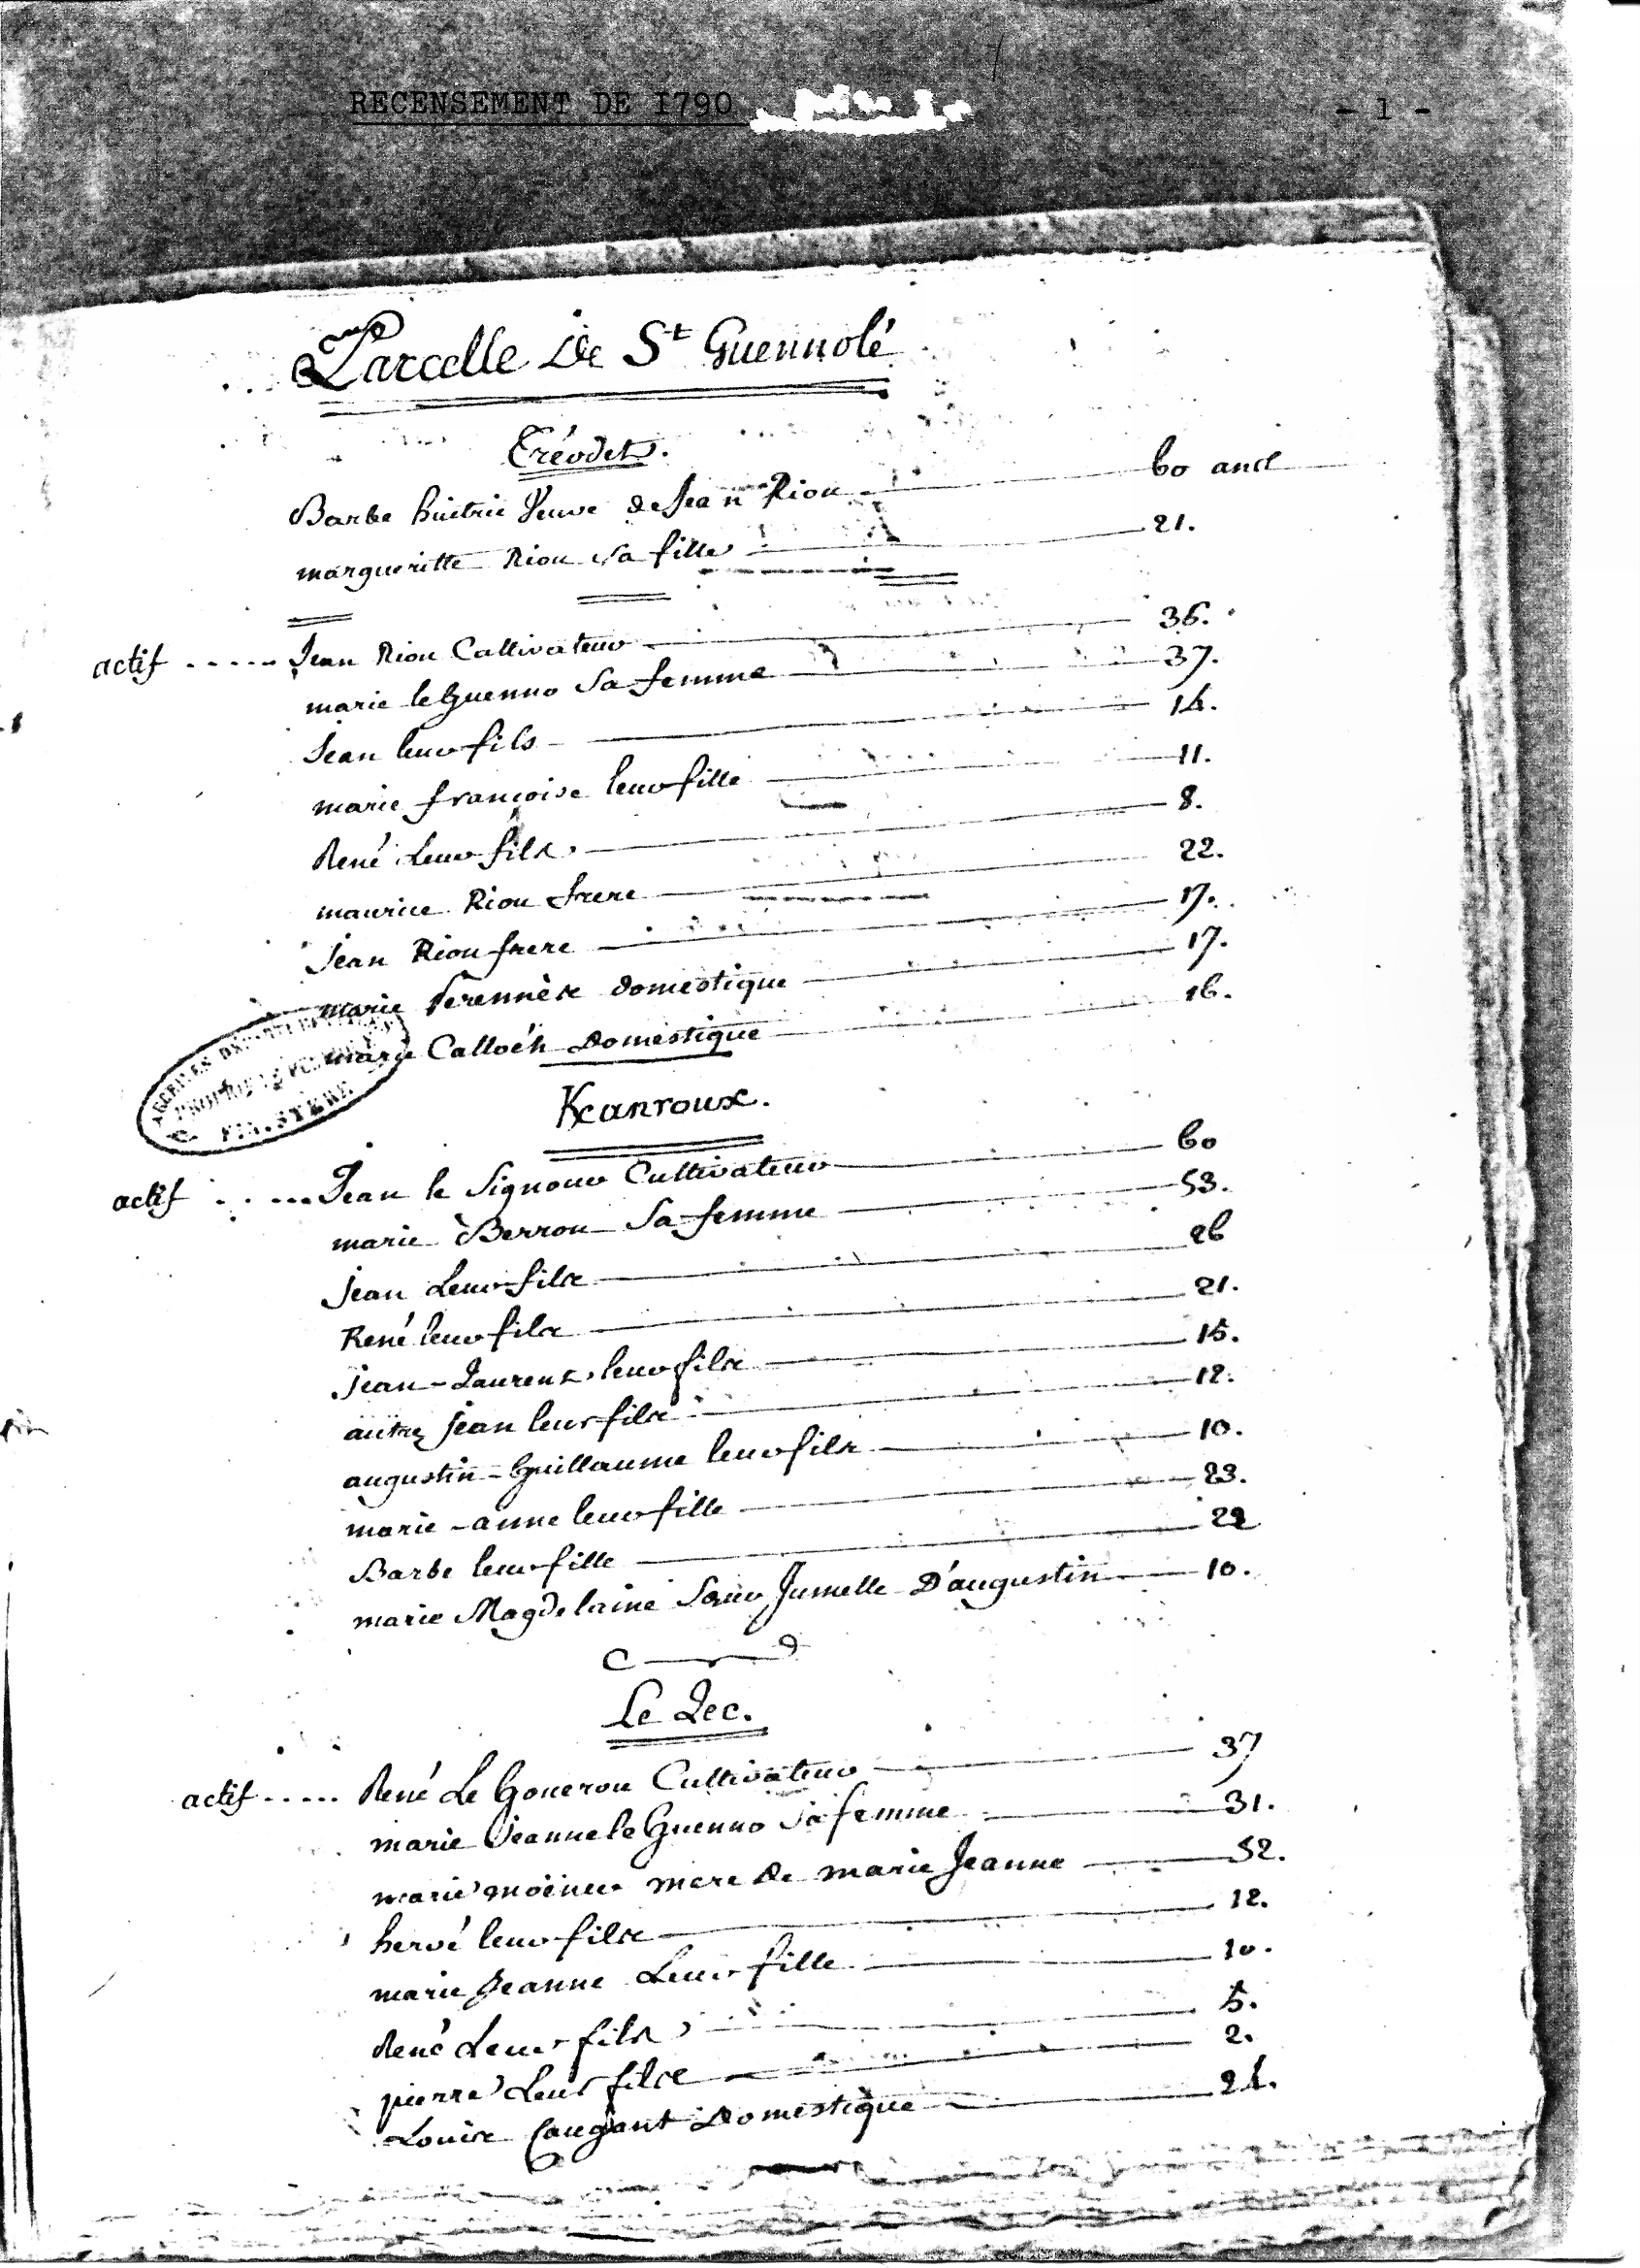 RECENSEMENT DE 1790
- 1 -
Parcelle De St Guennolé
Tréodet.
Barbe huitric Veuve de Jean Riou 60 ans
margueritte Riou Sa fille 21.
actif ..... Jean Riou Cultivateur 36.
marie le Guenno Sa femme 37.
Jean leur fils 14.
marie françoise leur fille 11.
René Leur fils 8.
maurice Riou frere 22.
Jean Riou frere 17.
marie Perennès domestique 17.
marie Calloc'h Domestique 16.
ARCHIVES DÉPARTEMENTALES
PROPRIÉTÉ PUBLIQUE
FINISTERE
Kanroux.
actif ..... Jean le Signour Cultivateur 60
marie Berrou Sa femme 53.
jean Leur fils 26
René leur fils 21.
jean-Laurens leur fils 15.
autre jean leur fils 12.
augustin-Guillaume leur fils 10.
marie-anne leur fille 23.
Barbe leur fille 22
marie Magdelaine Sœur Jumelle D'augustin 10.
Le Lec.
actif ..... René Le Gouerou Cultivateur 37
marie Jeanne le Guenno Sa femme 31.
marie mere De marie Jeanne 52.
hervé leur fils 12.
marie Jeanne Leur fille 10.
René Leur fils 5.
pierre Leur fils 2.
Louise Caugant Domestique 24.